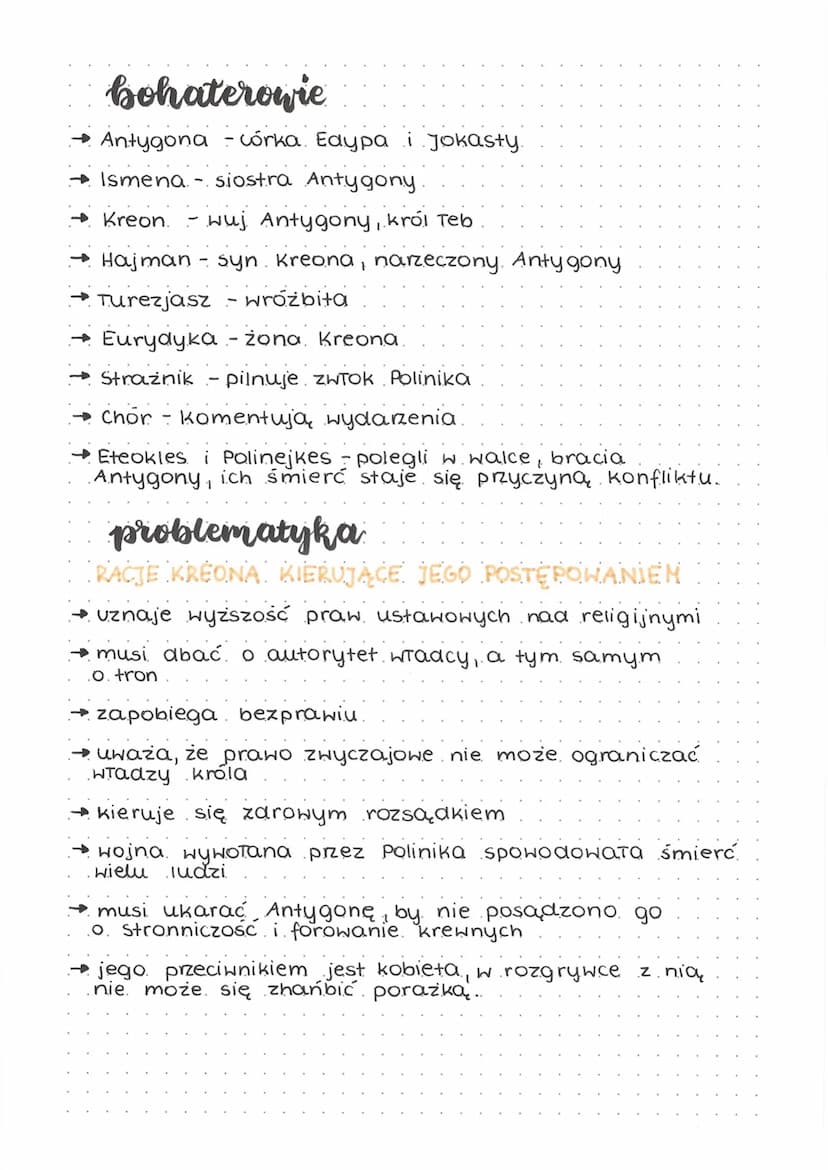 bohaterowie
→ Antygona - córka Edypa i Jokasty
→ Ismena - siostra Antygony
→ Kreon - wuj Antygony, król Teb
→ Hajman - syn Kreona, narzeczony Antygony
→ Turezjasz - wróżbita
→ Eurydyka - żona Kreona
→ Strażnik - pilnuje zwłok Polinika
→ Chór - komentują wydarzenia
→ Eteokles i Polinejkes - polegli w walce, bracia
Antygony, ich śmierć staje się przyczyną konfliktu.
problematyka
RACJE KREONA KIERUJĄCE JEGO POSTĘPOWANIEM
→ uznaje wyższość praw ustawowych nad religijnymi
→ musi dbać o autorytet władcy, a tym samym
o tron
→ zapobiega bezprawiu
→ uważa, że prawo zwyczajowe nie może ograniczać
władzy króla
→ kieruje się zdrowym rozsądkiem
→ wojna wywołana przez Polinika spowodowała śmierć
wielu ludzi
→ musi ukarać Antygonę, by nie posądzono go
o stronniczość i forowanie krewnych
→ jego przeciwnikiem jest kobieta, w rozgrywce z nią
nie może się zhańbić porażką.